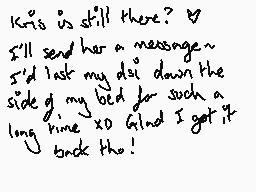 Kris is still there? ♥
I'll send her a message~
I'd last my dsi down the
side of my bed for such a
long time XD Glad I got it
back tho!